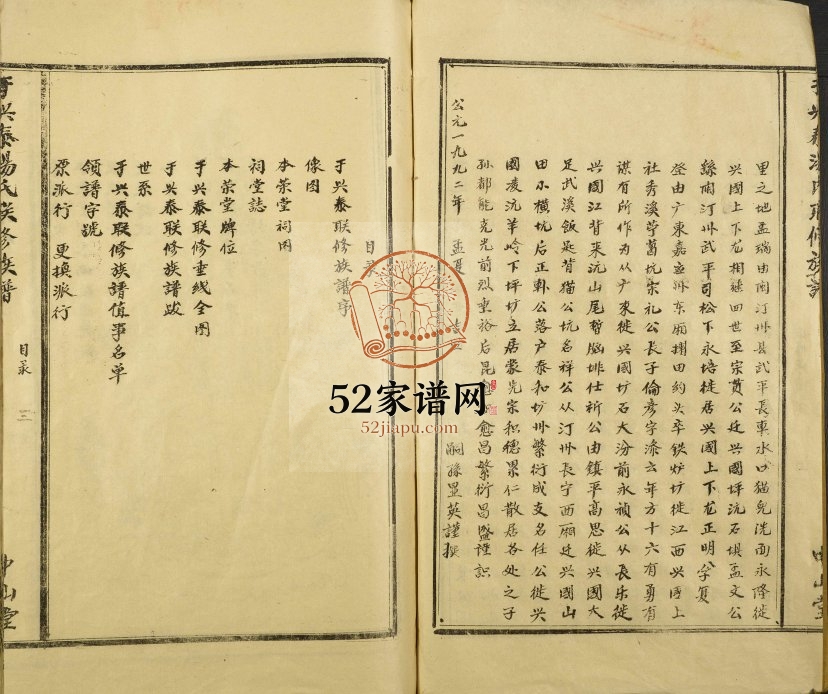 里之地孟瑞由闽汀州县武平長東水口猫兒洗面永隆徙
兴國上下龙相継四世至宗貫公迁兴國坪沅石垻孟文公
縣闽汀州武平司松下永培徙居兴國上下龙正明公学复
登由广東嘉应州东廂撑田約头卒鉄炉坊徙江西兴國上
社秀溪劳葛坑宗礼公長子倫彦字添六年方十六有勇有
谋有所作为从广東徙兴國坊石大汾前永禎公从長乐徙
兴國江背来沅山尾暫脳排仕祈公由鎮平高思徙兴國大
足武溪飯匙背猫公坑名祥公从汀州長宁西廂迁兴國山
田小横坑后正
公落户泰和圷州繁衍成支名任公徙兴
國凌沅羊岭下坪坊立居蒙先宗积德累仁散居各处之子
孙都能克光前烈垂裕后昆
愈昌繁衍昌盛謹识
公元一九九二年
孟夏
嗣孫显英謹撰
目
于兴泰联修族譜序
像图
本荣堂祠图
祠堂誌
本荣堂牌位
于兴泰联修垂线全图
于兴泰联修族譜跋
世系
于兴泰联修族譜值事名单
領譜字號
原派行 更換派行
于兴泰湯氏联修族譜
中山堂
于兴泰湯氏联修族譜
目录
三
中山堂
52家谱网
52jiapu.com